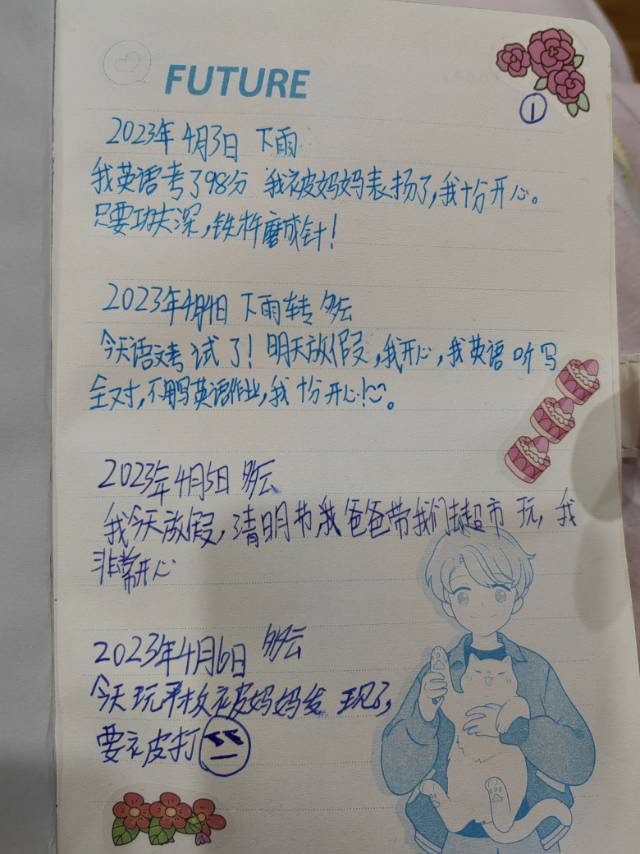 FUTURE
①
2023年4月3日 下雨
我英语考了98分 我被妈妈表扬了,我十分开心。
只要功夫深,铁杵磨成针!
2023年4月4日 下雨转多云
今天语文考试了!明天放假,我开心,我英语听写
全对,不用写英语作业,我十分开心!。
2023年4月5日 多云
我今天放假,清明节我爸爸带我们去超市玩,我
非常开心
2023年4月6日 多云
今天玩平板被妈妈发现了,
要被打